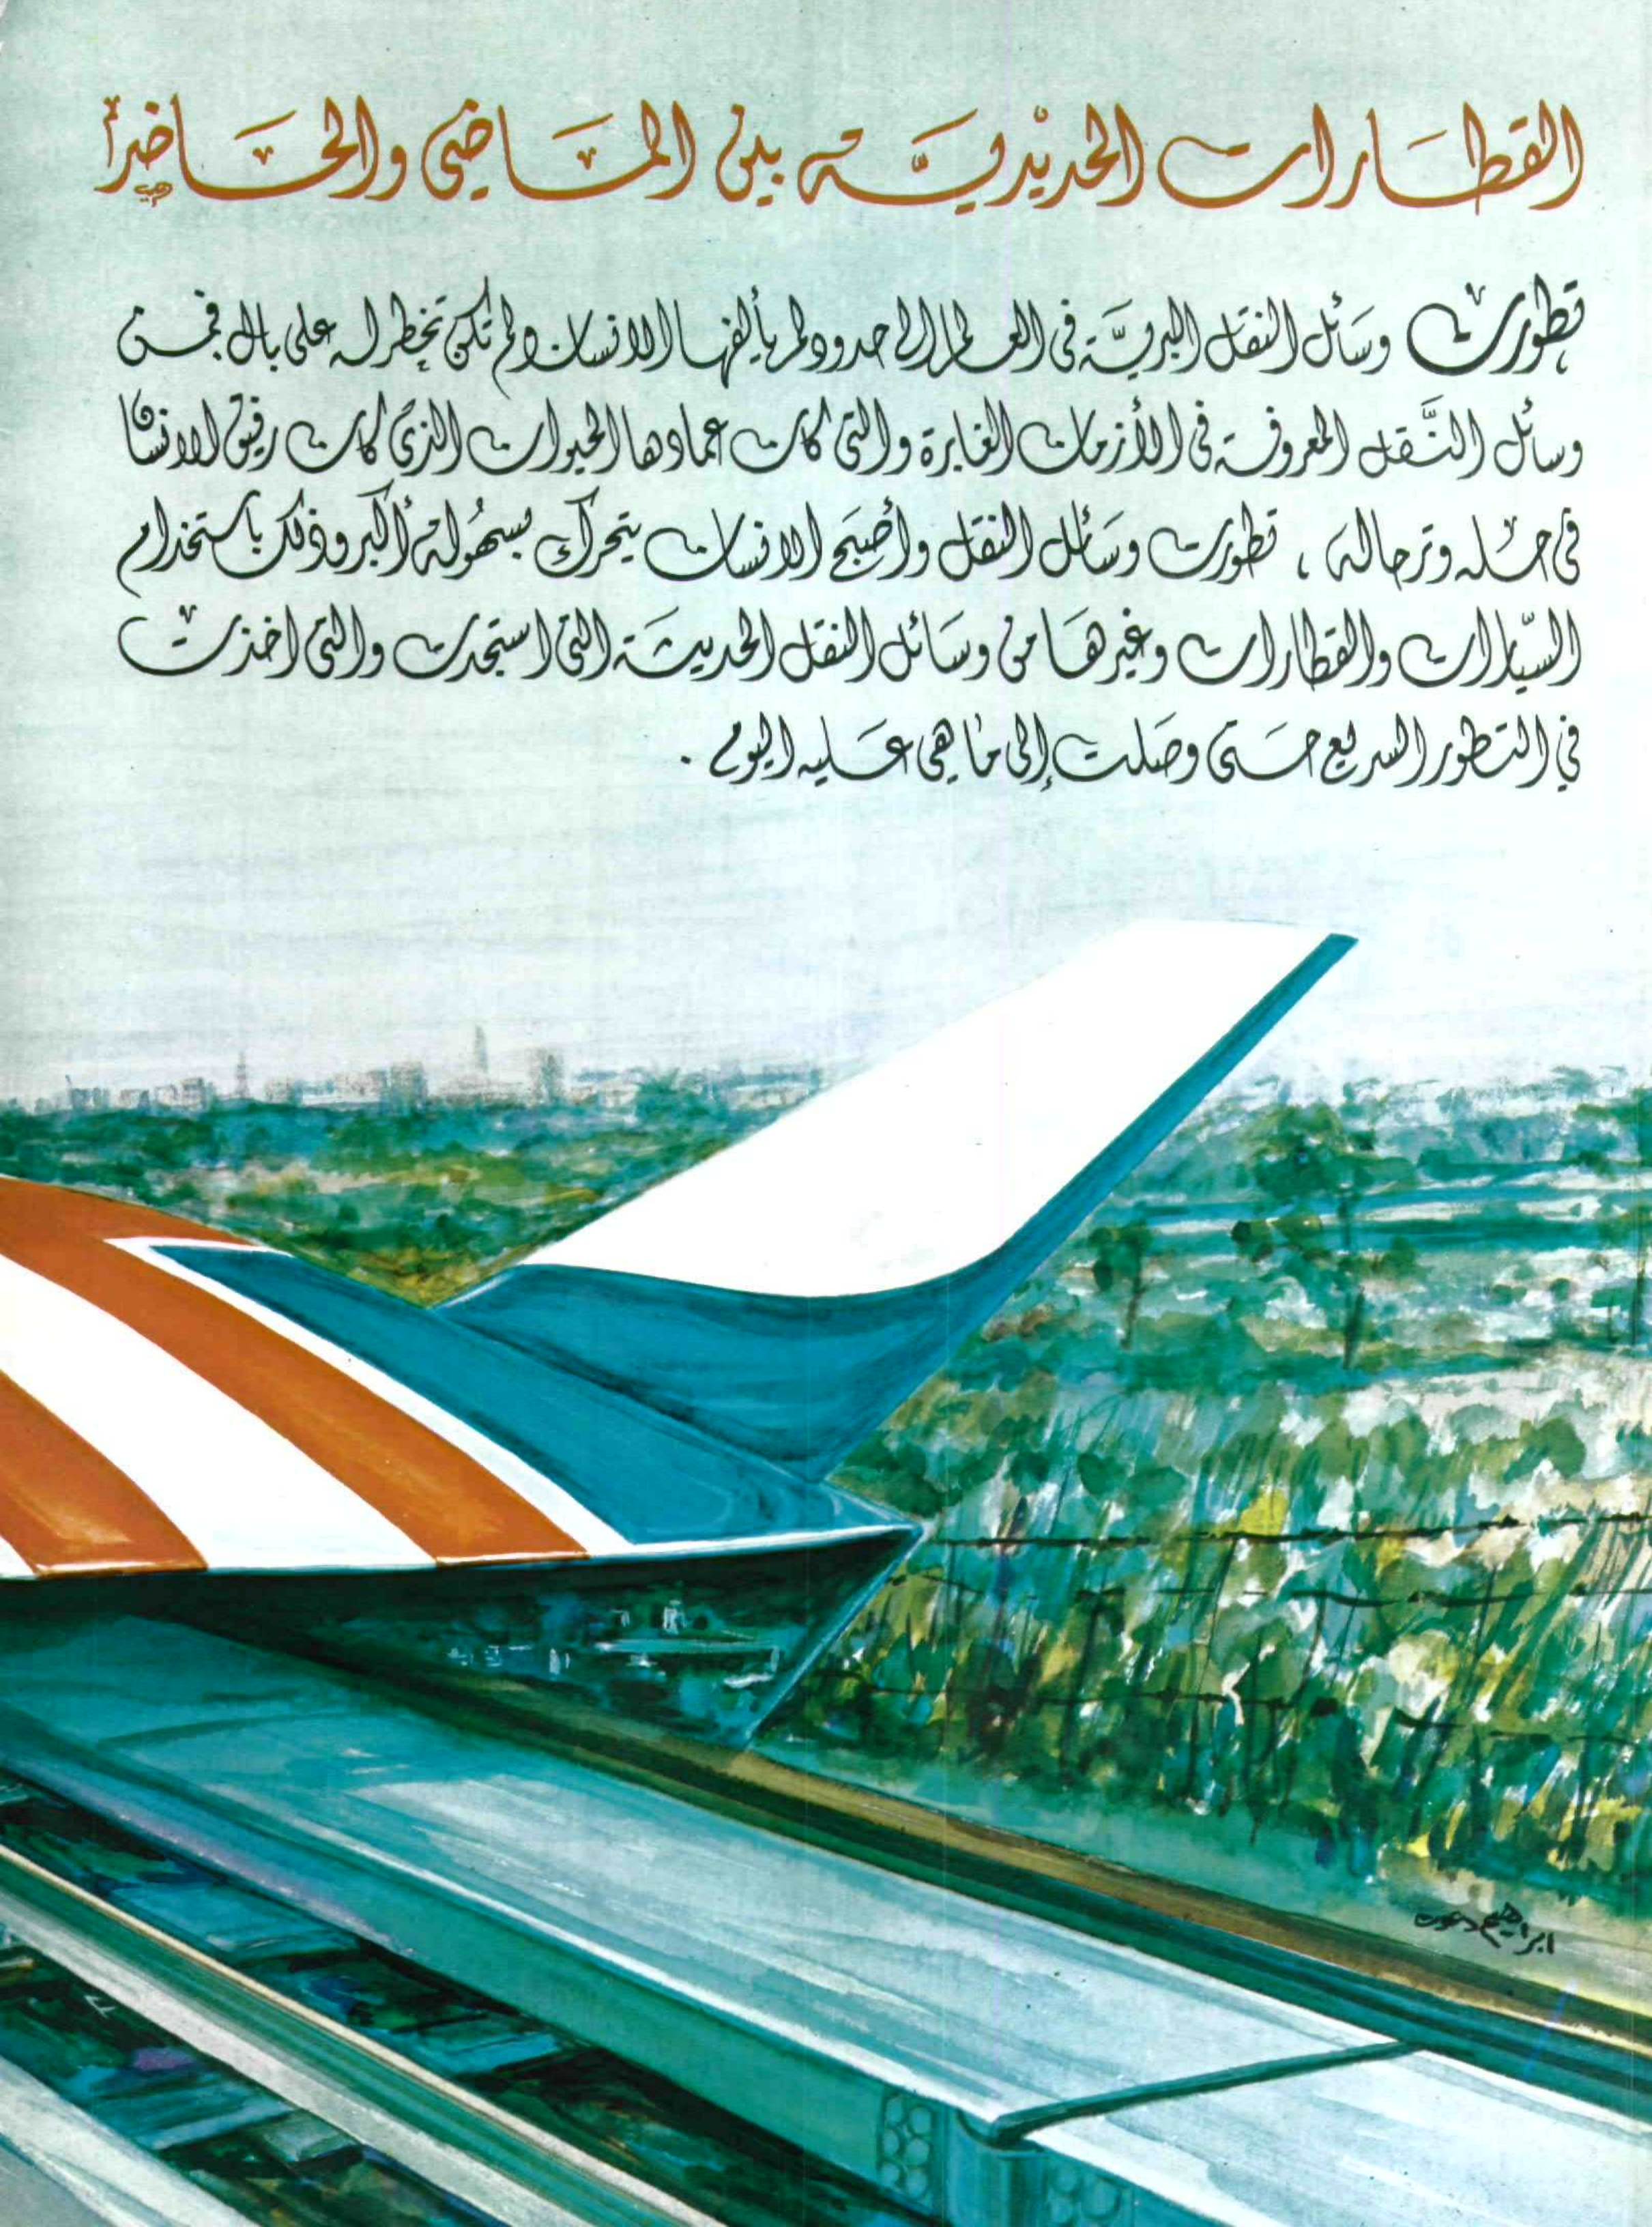 القطارات الحديديَّة بين الماضي والحاضر
تطورت وسَائل النقل البريَّة في العالم إلى حدود لم يألفها الانسان ولم تكن تخطر له على بال فمن
وسائل النَّقل المعروفة في الأزمان الغابرة والتي كان عمادها الحيوان الذي كان رفيق الانسان
في حله وترحاله ، تطورت وسَائل النقل وأصبَح الانسان يتحرك بسهُولة أكبر وذلك باستخدام
السيّارات والقطارات وغيرهَا من وسَائل النقل الحديثة التي استجدت والتي اخذت
في التطور السريع حتى وصَلت إلى مَا هي عَليه اليوم .
ابراهيم